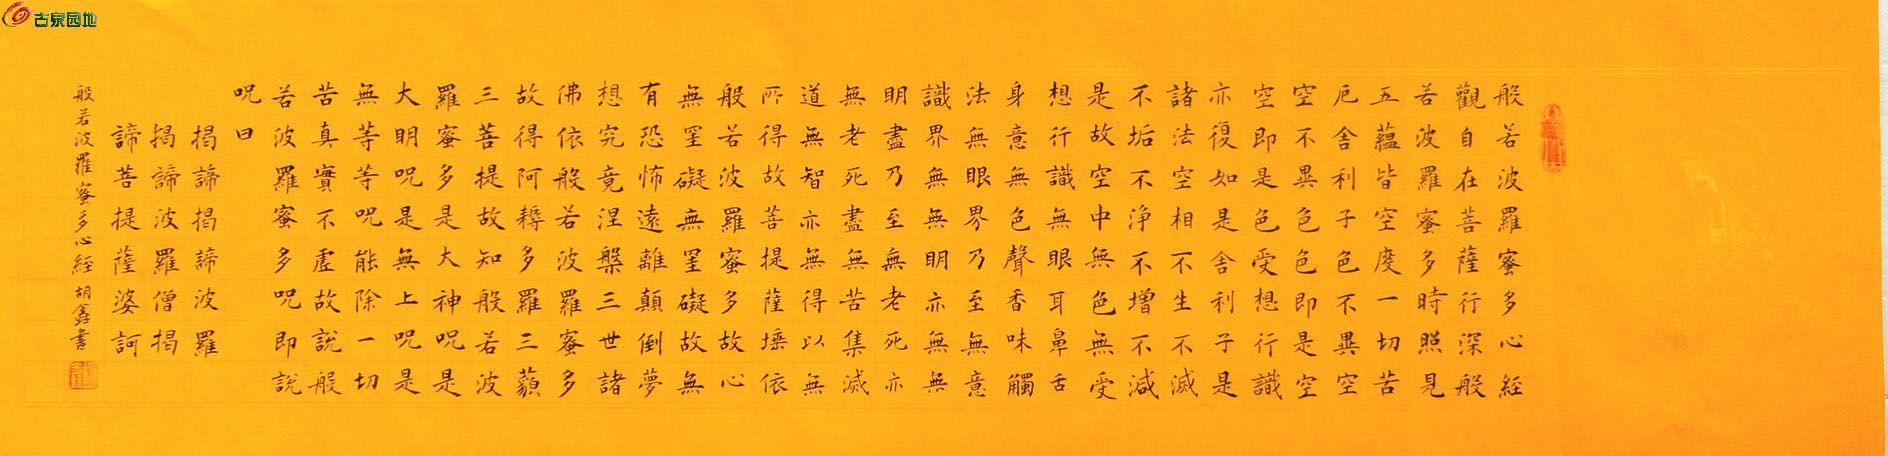 古泉园地
般若波羅蜜多心經
觀自在菩薩行深般
若波羅蜜多時照見
五蘊皆空度一切苦
厄舍利子色不異空
空不異色色即是空
空即是色受想行識
亦復如是舍利子是
諸法空相不生不滅
不垢不淨不增不減
是故空中無色無受
想行識無眼耳鼻舌
身意無色聲香味觸
法無眼界乃至無意
識界無無明亦無無
明盡乃至無老死亦
無老死盡無苦集滅
道無智亦無得以無
所得故菩提薩埵依
般若波羅蜜多故心
無罣礙無罣礙故無
有恐怖遠離顛倒夢
想究竟涅槃三世諸
佛依般若波羅蜜多
故得阿耨多羅三藐
三菩提故知般若波
羅蜜多是大神呪是
大明呪是無上呪是
無等等呪能除一切
苦真實不虛故說般
若波羅蜜多呪即說
呪曰
揭諦揭諦波羅
揭諦波羅僧揭
諦菩提薩婆訶
般若波羅蜜多心經胡鑫書